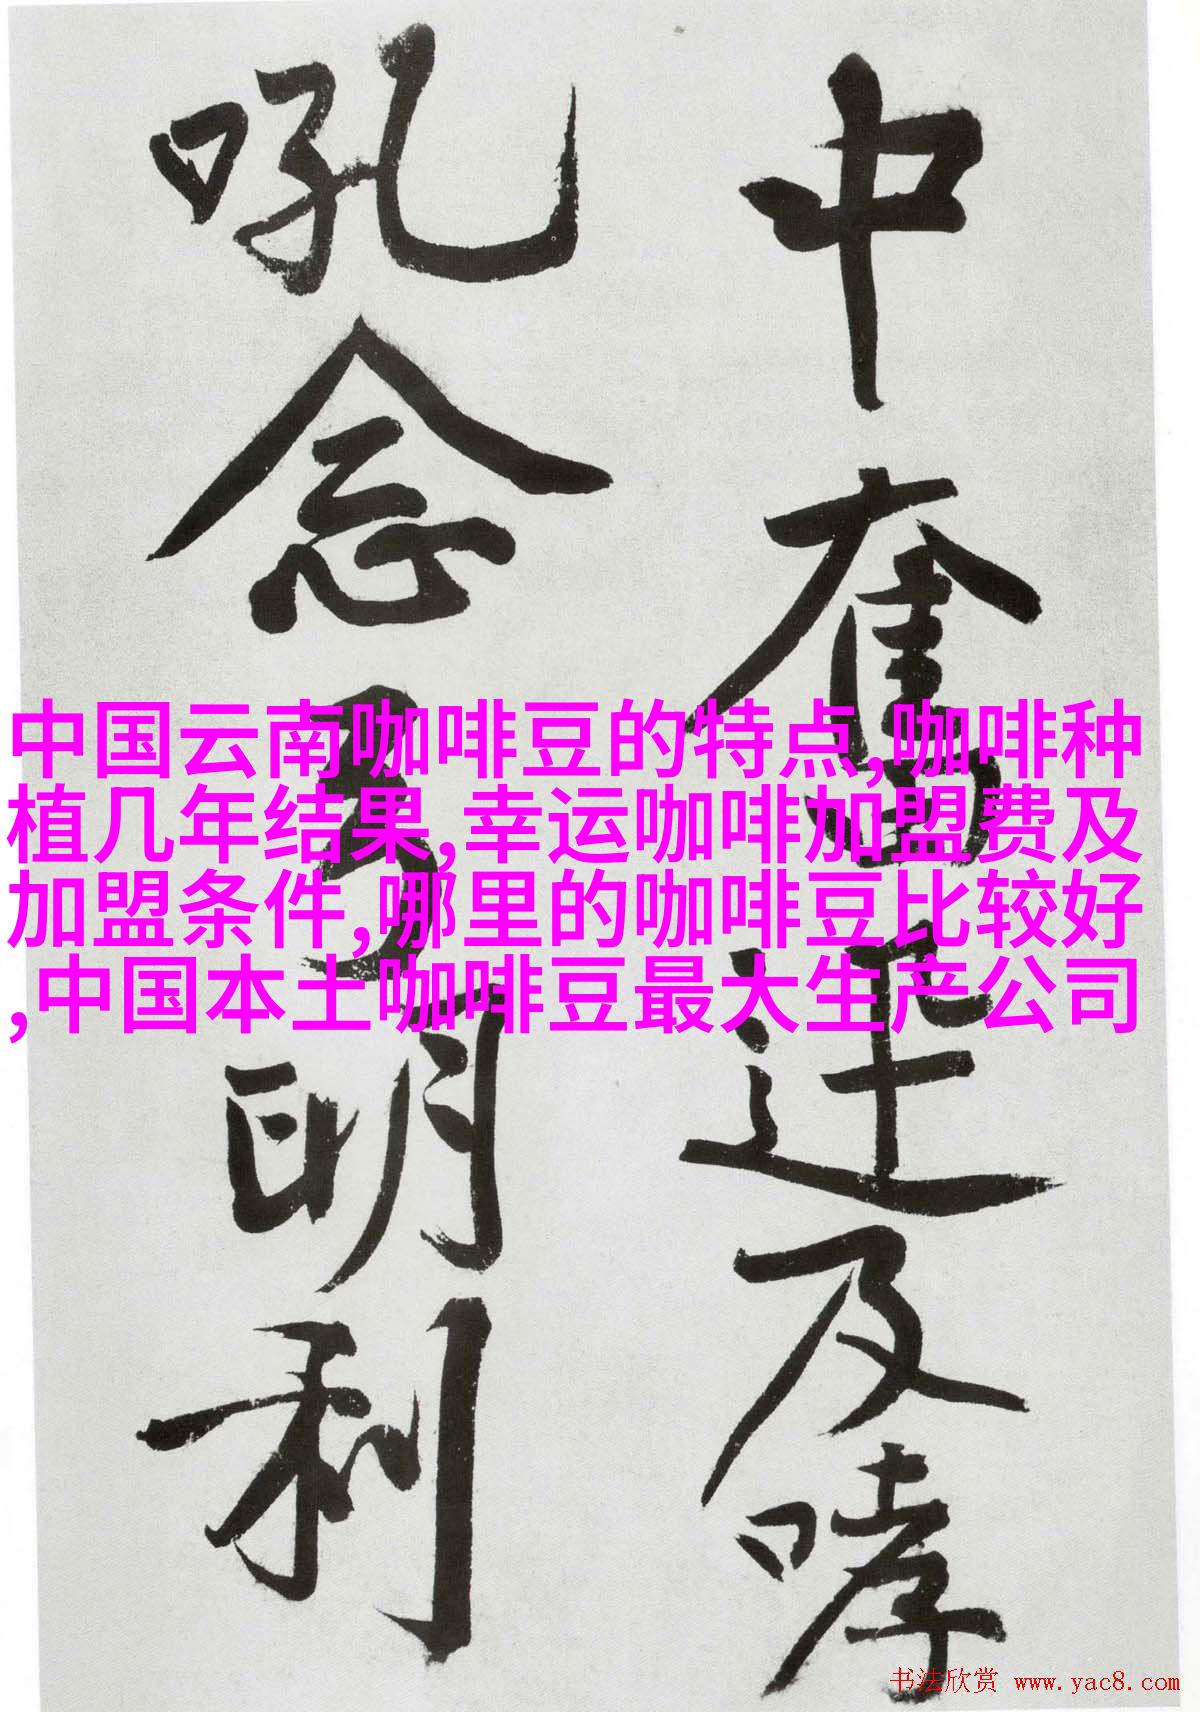 中奮迅及哮
吼念
明利
中国云南咖啡豆的特点,咖啡种
植几年结果,幸运咖啡加盟费及
加盟条件,哪里的咖啡豆比较好
,中国本土咖啡豆最大生产公司
书法欣赏 www.yac8.com